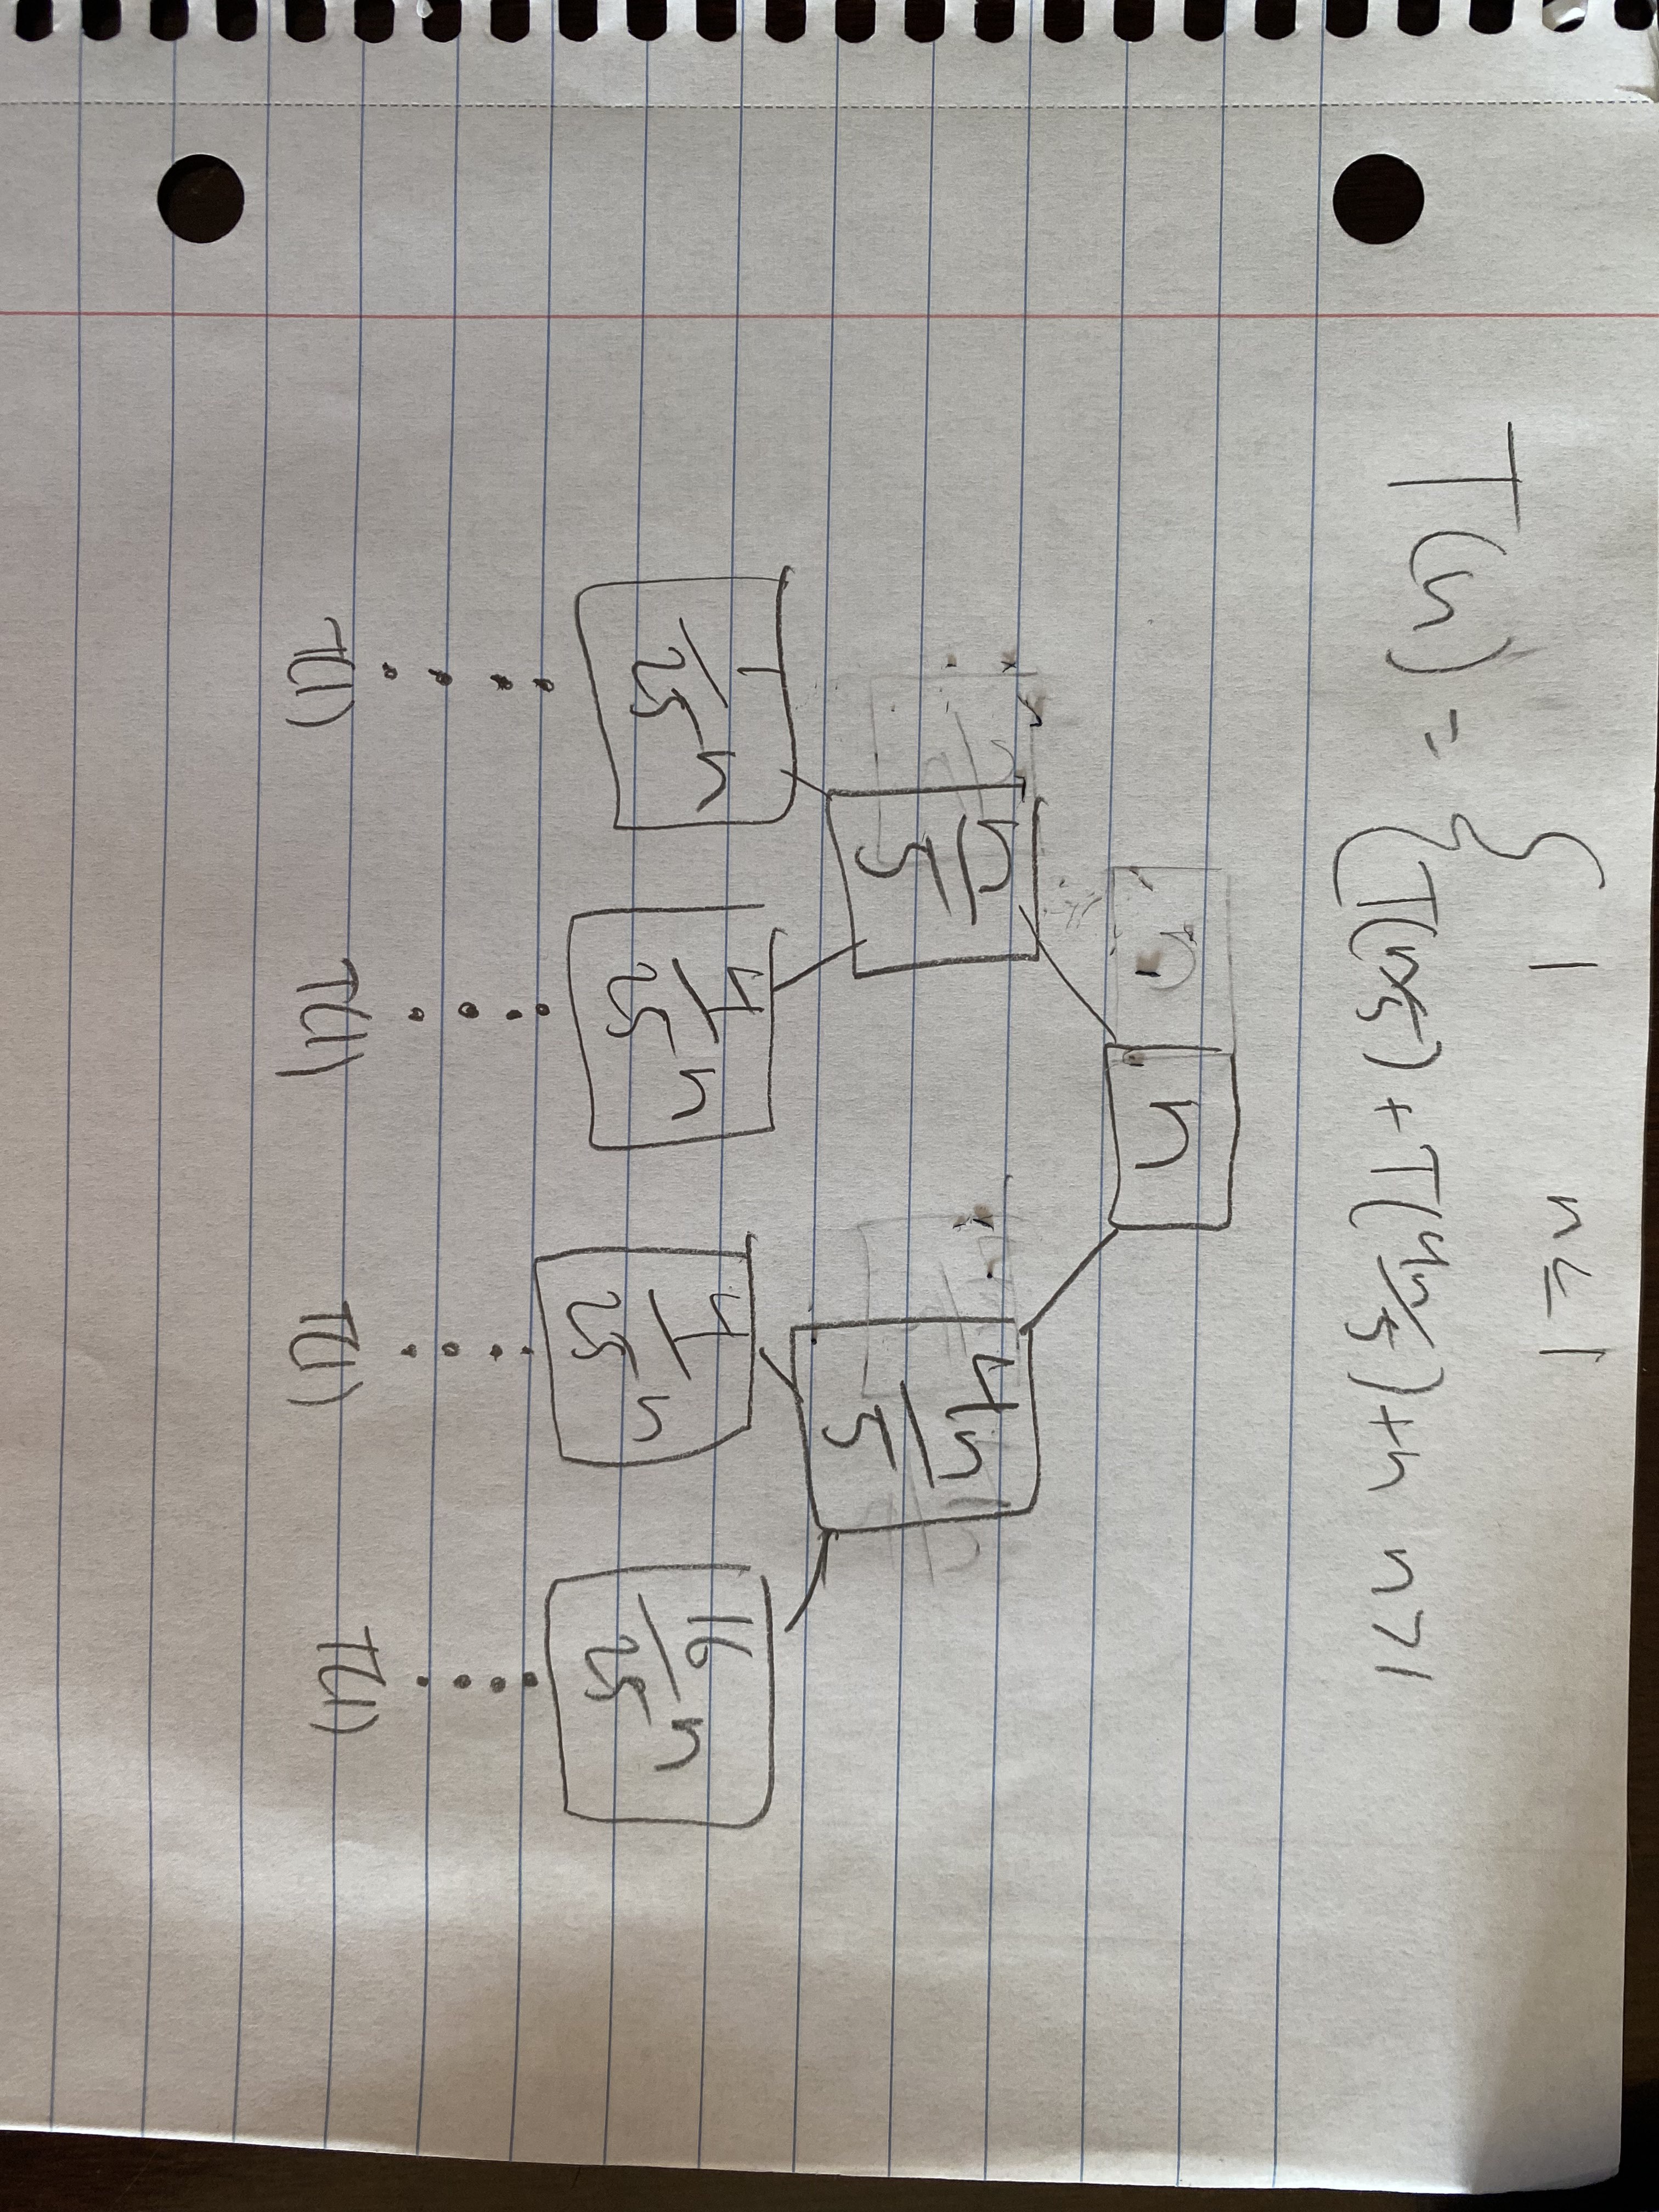 T(n) = { 1 n ≤ 1
{ T(n/5) + T(4n/5) + n n>1
n
n/5 4n/5
1/25 n 4/25 n 4/25 n 16/25 n
T(1) T(1) T(1) T(1)